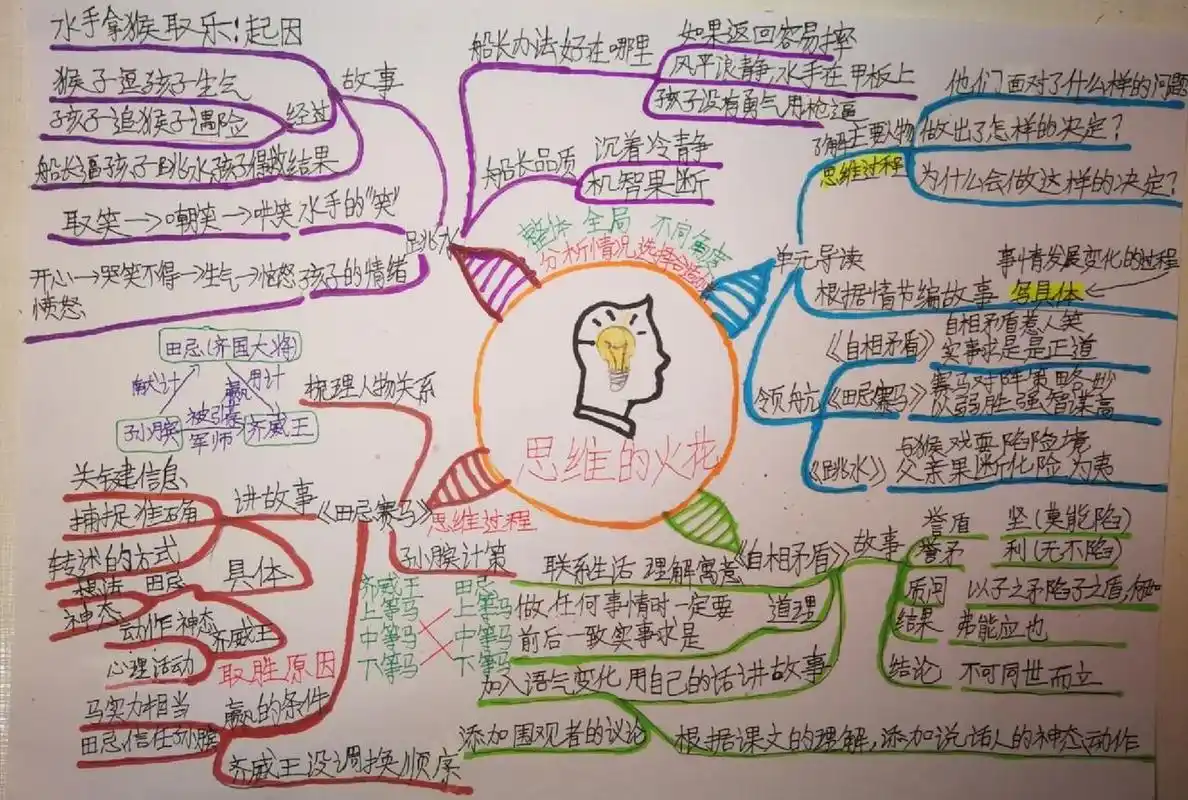 水手拿猴取乐!起因
猴子逗孩子生气
孩子追猴子遇险
经过
故事
船长逼孩子跳水,孩子得救
结果
取笑→嘲笑→哄笑
水手的"笑"
开心→哭笑不得→生气→恼怒
愤怒
孩子的情绪
跳水
船长办法好在哪里
如果返回容易摔
风平浪静,水手在甲板上
孩子没有勇气用枪逼
船长品质
沉着冷静
机智果断
整体 全局 不同角度
分析情况
思维的火花
单元导读
了解主要人物
思维过程
他们面对了什么样的问题
做出了怎样的决定?
为什么会做这样的决定?
根据情节编故事
事情发展变化的过程
写具体
领航
《自相矛盾》
自相矛盾惹人笑
实事求是是正道
《田忌赛马》
赛马对阵策略妙
以弱胜强智谋高
《跳水》
与猴戏耍陷险境
父亲果断化险为夷
田忌(齐国大将)
献计
赢
用计
孙膑
被引荐
军师
齐威王
梳理人物关系
《田忌赛马》
思维过程
讲故事
关键信息
捕捉准确
转述的方式
具体
想法
田忌
神态
动作
神态
齐威王
心理活动
取胜原因
赢的条件
马实力相当
田忌信任孙膑
齐威王没调换顺序
孙膑计策
齐威王 田忌
上等马 上等马
中等马 中等马
下等马 下等马
《自相矛盾》
联系生活 理解寓意
做任何事情时一定要
前后一致实事求是
道理
加入语气变化 用自己的话讲故事
添加围观者的议论
根据课文的理解,添加说话人的神态动作
故事
誉盾 坚(莫能陷)
誉矛 利(无不陷)
质问 以子之矛陷子之盾,何如
结果 弗能应也
结论 不可同世而立